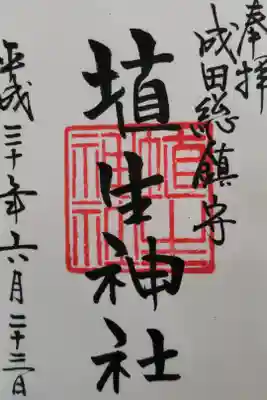 奉拝
成田総鎮守
埴生神社
平成三十年六月二十三日
埴生神社